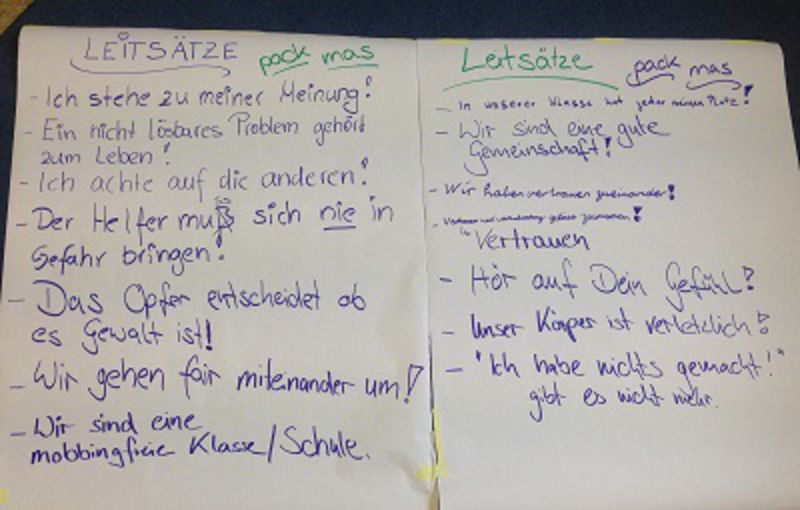 LEITSÄTZE pack mas
- Ich stehe zu meiner Meinung!
- Ein nicht lösbares Problem gehört
zum Leben!
- Ich achte auf die anderen!
- Der Helfer muß sich nie in
Gefahr bringen!
- Das Opfer entscheidet ob
es Gewalt ist!
- Wir gehen fair miteinander um!
- Wir sind eine
mobbingfreie Klasse/Schule.
Leitsätze pack mas
- In unserer Klasse hat jeder seinen Platz!
- Wir sind eine gute
Gemeinschaft!
- Wir haben vertrauen zueinander!
- gehören zusammen!
Vertrauen
- Hör auf Dein Gefühl!
- Unser Körper ist verletzlich!
- "Ich habe nichts gemacht!"
gibt es nicht mehr.